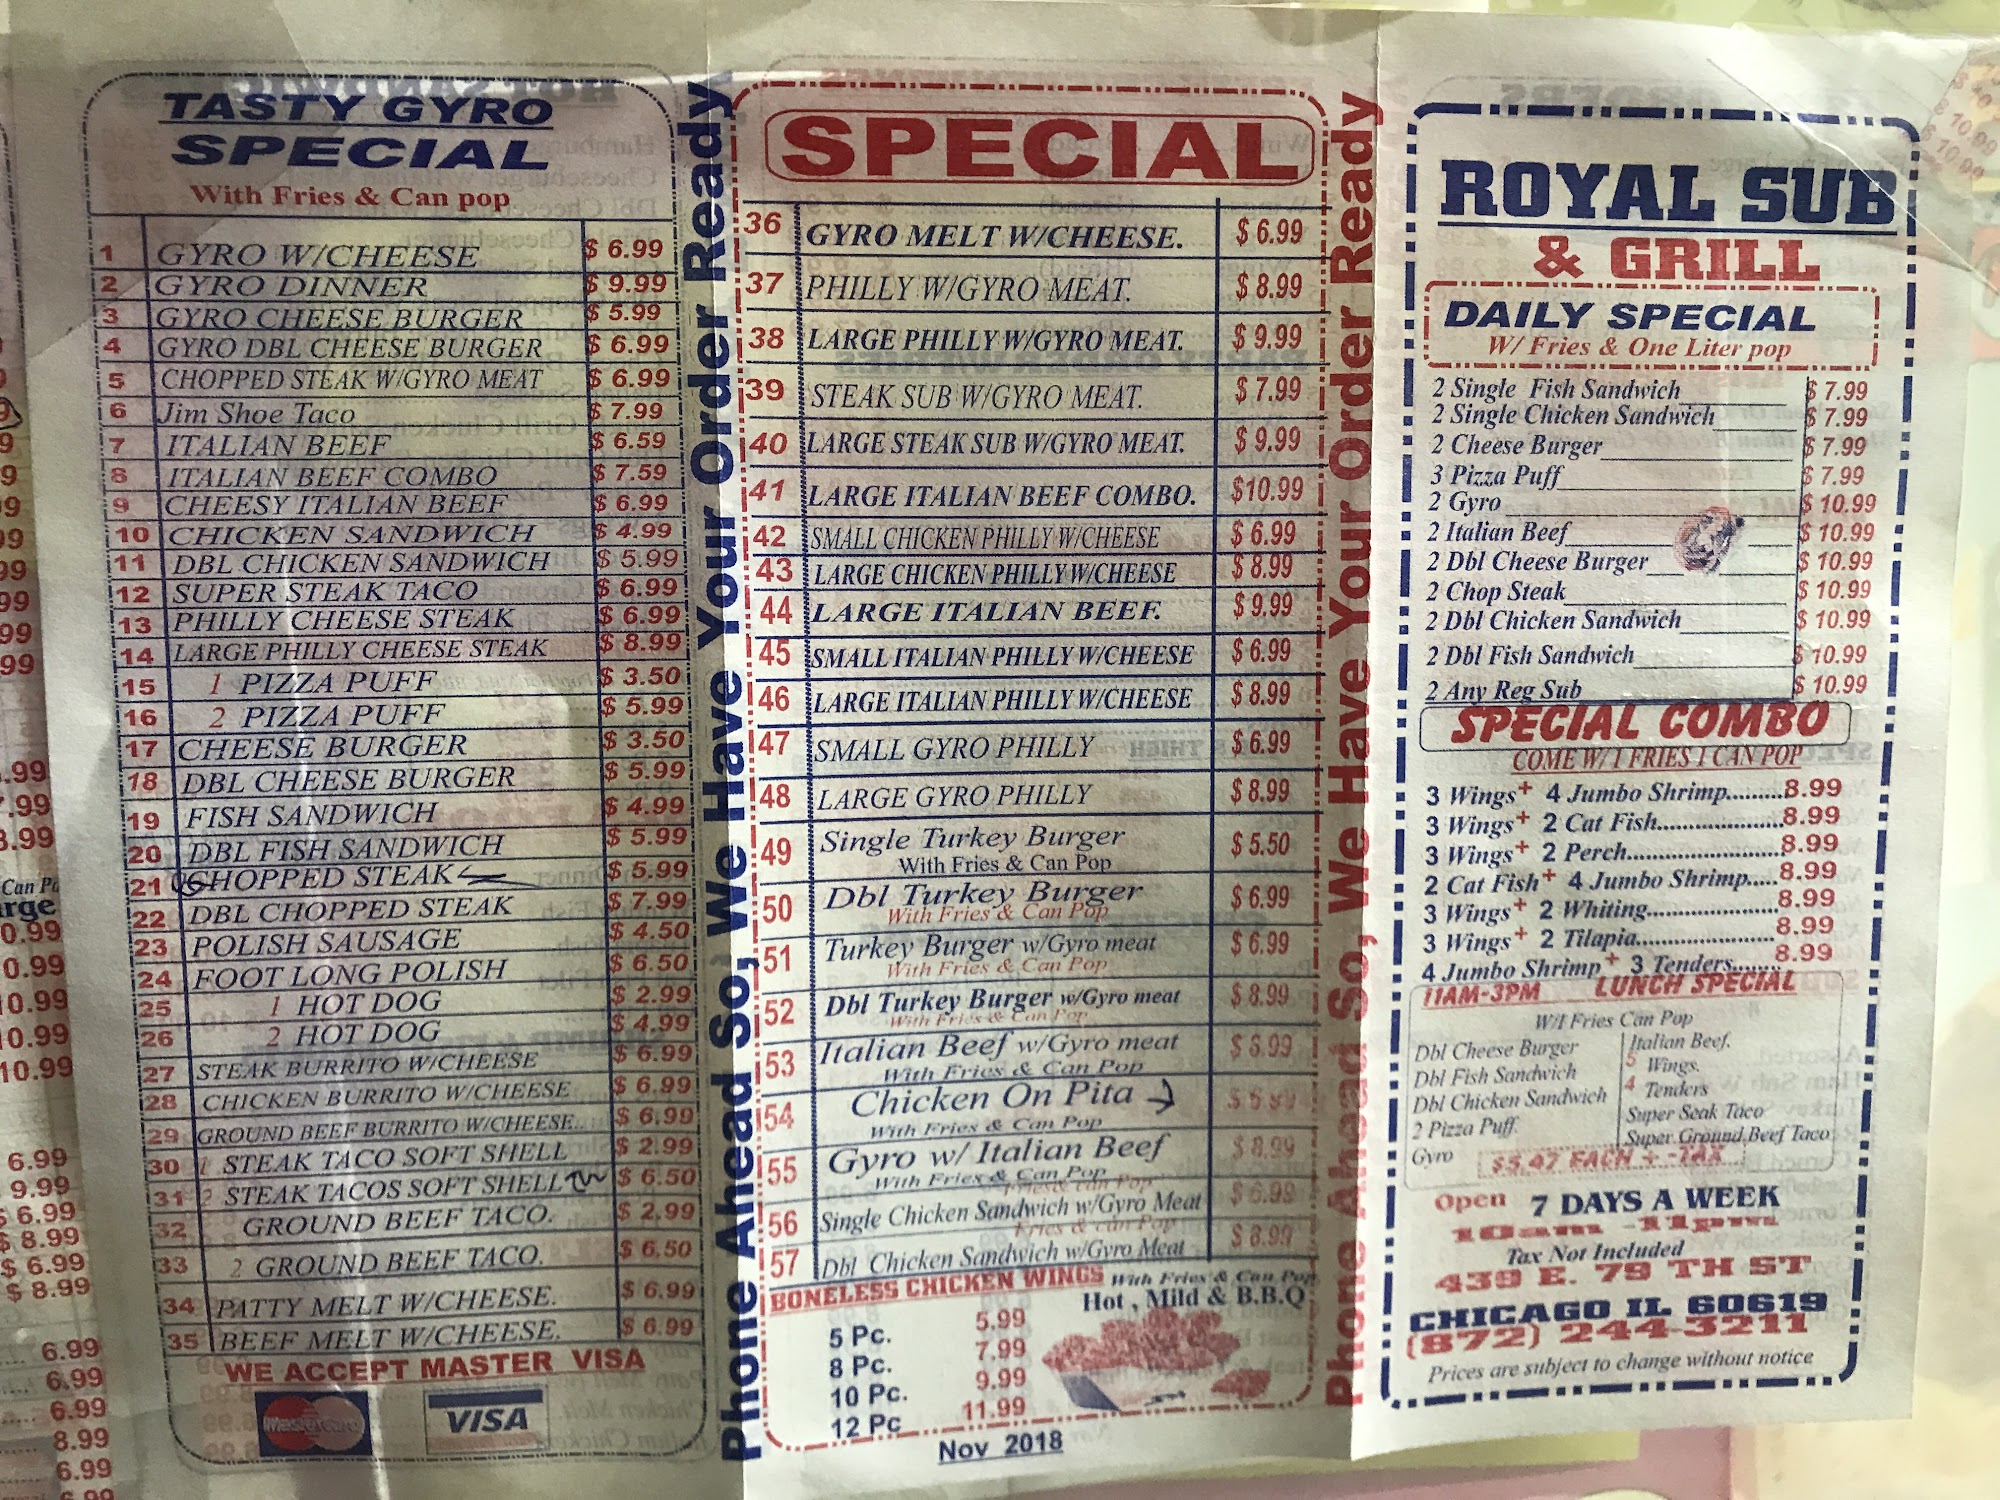 TASTY GYRO
SPECIAL
With Fries & Can pop
1 GYRO W/CHEESE $ 6.99
2 GYRO DINNER $ 9.99
3 GYRO CHEESE BURGER $ 5.99
4 GYRO DBL CHEESE BURGER $ 6.99
5 CHOPPED STEAK W/GYRO MEAT $ 6.99
6 Jim Shoe Taco $ 7.99
7 ITALIAN BEEF $ 6.59
8 ITALIAN BEEF COMBO $ 7.59
9 CHEESY ITALIAN BEEF $ 6.99
10 CHICKEN SANDWICH $ 4.99
11 DBL CHICKEN SANDWICH $ 5.99
12 SUPER STEAK TACO $ 6.99
13 PHILLY CHEESE STEAK $ 6.99
14 LARGE PHILLY CHEESE STEAK $ 8.99
15 1 PIZZA PUFF $ 3.50
16 2 PIZZA PUFF $ 5.99
17 CHEESE BURGER $ 3.50
18 DBL CHEESE BURGER $ 5.99
19 FISH SANDWICH $ 4.99
20 DBL FISH SANDWICH $ 5.99
21 CHOPPED STEAK $ 5.99
22 DBL CHOPPED STEAK $ 7.99
23 POLISH SAUSAGE $ 4.50
24 FOOT LONG POLISH $ 6.50
25 1 HOT DOG $ 2.99
26 2 HOT DOG $ 4.99
27 STEAK BURRITO W/CHEESE $ 6.99
28 CHICKEN BURRITO W/CHEESE $ 6.99
29 GROUND BEEF BURRITO W/CHEESE.. $ 6.99
30 1 STEAK TACO SOFT SHELL $ 2.99
31 2 STEAK TACOS SOFT SHELL $ 6.50
32 GROUND BEEF TACO. $ 2.99
33 2 GROUND BEEF TACO. $ 6.50
34 PATTY MELT W/CHEESE. $ 6.99
35 BEEF MELT W/CHEESE. $ 6.99
WE ACCEPT MASTER VISA
MasterCard VISA
Phone Ahead So, We Have Your Order Ready
SPECIAL
36 GYRO MELT W/CHEESE. $ 6.99
37 PHILLY W/GYRO MEAT. $ 8.99
38 LARGE PHILLY W/GYRO MEAT. $ 9.99
39 STEAK SUB W/GYRO MEAT. $ 7.99
40 LARGE STEAK SUB W/GYRO MEAT. $ 9.99
41 LARGE ITALIAN BEEF COMBO. $10.99
42 SMALL CHICKEN PHILLY W/CHEESE $ 6.99
43 LARGE CHICKEN PHILLY W/CHEESE $ 8.99
44 LARGE ITALIAN BEEF. $ 9.99
45 SMALL ITALIAN PHILLY W/CHEESE $ 6.99
46 LARGE ITALIAN PHILLY W/CHEESE $ 8.99
47 SMALL GYRO PHILLY $ 6.99
48 LARGE GYRO PHILLY $ 8.99
49 Single Turkey Burger $ 5.50
With Fries & Can Pop
50 Dbl Turkey Burger $ 6.99
With Fries & Can Pop
51 Turkey Burger w/Gyro meat $ 6.99
With Fries & Can Pop
52 Dbl Turkey Burger w/Gyro meat $ 8.99
With Fries & Can Pop
53 Italian Beef w/Gyro meat $ 8.99
With Fries & Can Pop
54 Chicken On Pita
With Fries & Can Pop
55 Gyro w/ Italian Beef $ 8.99
With Fries & Can Pop
Fries & can Pop
56 Single Chicken Sandwich w/Gyro Meat $ 6.99
Fries & can Pop
57 Dbl Chicken Sandwich w/Gyro Meat $ 8.99
BONELESS CHICKEN WINGS With Fries & Can Pop
Hot , Mild & B.B.Q
5 Pc. 5.99
8 Pc. 7.99
10 Pc. 9.99
12 Pc 11.99
Nov 2018
Phone Ahead So, We Have Your Order Ready
ROYAL SUB
& GRILL
DAILY SPECIAL
W/ Fries & One Liter pop
2 Single Fish Sandwich $ 7.99
2 Single Chicken Sandwich $ 7.99
2 Cheese Burger $ 7.99
3 Pizza Puff $ 7.99
2 Gyro $ 10.99
2 Italian Beef $ 10.99
2 Dbl Cheese Burger $ 10.99
2 Chop Steak $ 10.99
2 Dbl Chicken Sandwich $ 10.99
2 Dbl Fish Sandwich $ 10.99
2 Any Reg Sub $ 10.99
SPECIAL COMBO
COME W/ 1 FRIES 1 CAN POP
3 Wings+ 4 Jumbo Shrimp.........8.99
3 Wings+ 2 Cat Fish....................8.99
3 Wings+ 2 Perch........................8.99
2 Cat Fish+ 4 Jumbo Shrimp.....8.99
3 Wings+ 2 Whiting.....................8.99
3 Wings+ 2 Tilapia.......................8.99
4 Jumbo Shrimp+ 3 Tenders........8.99
11AM-3PM LUNCH SPECIAL
W/1 Fries Can Pop
Dbl Cheese Burger
Dbl Fish Sandwich
Dbl Chicken Sandwich
2 Pizza Puff
Gyro
Italian Beef.
5 Wings.
4 Tenders
Super Seak Taco
Super Ground Beef Taco
$5.47 EACH + -TAX
Open 7 DAYS A WEEK
10am -11pm
Tax Not Included
439 E. 79 TH ST
CHICAGO IL 60619
(872) 244-3211
Prices are subject to change without notice